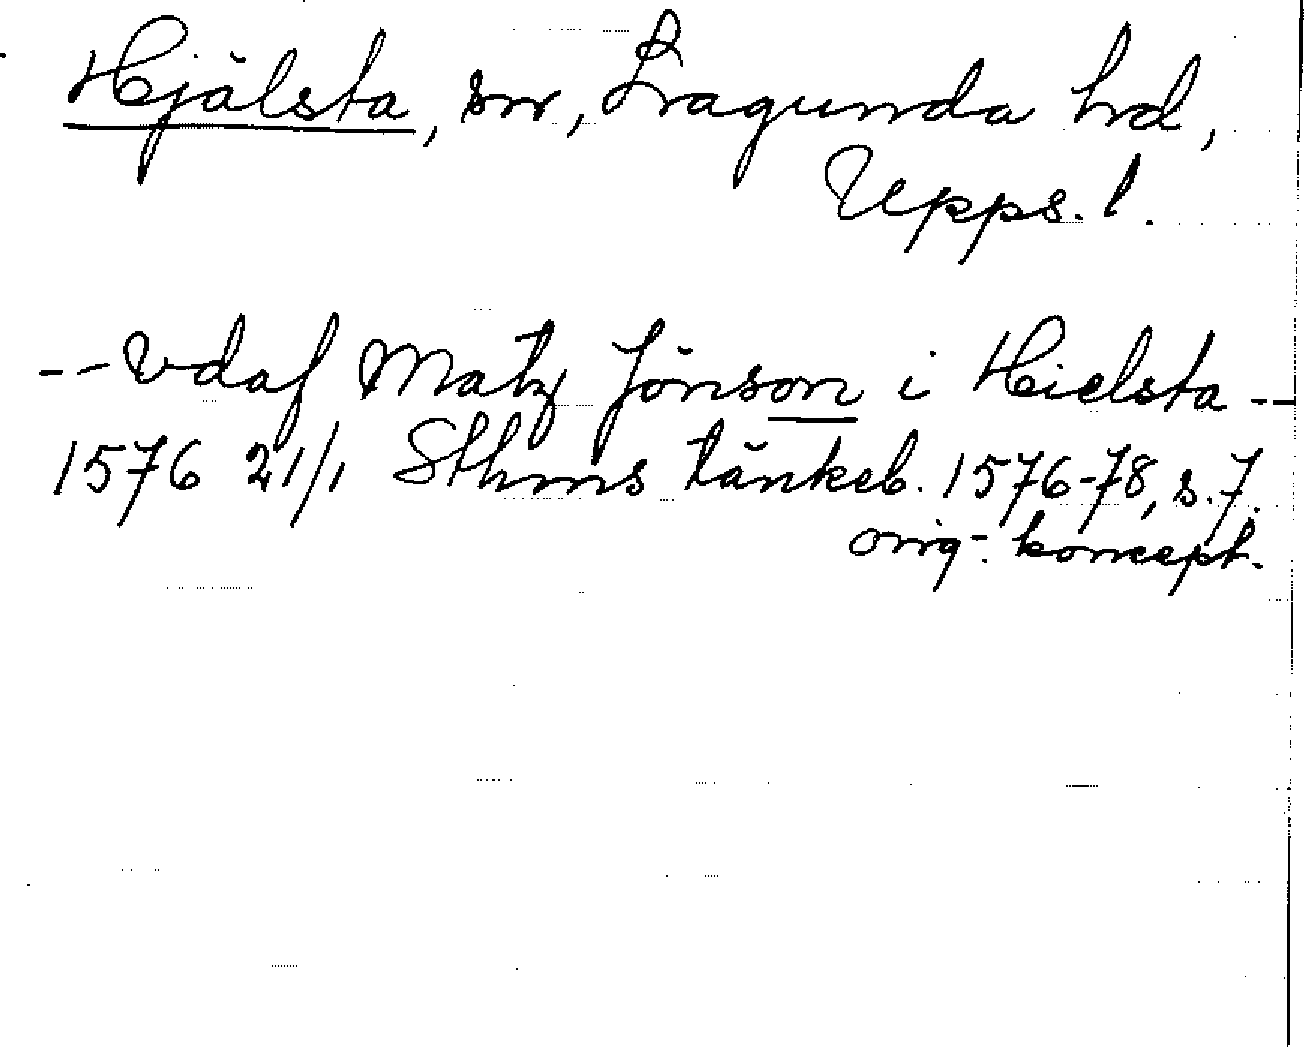 Hjälsta, sn, Lagunda hd,
Upps. l.
-- Vdaf Matz Jönson i Hielsta --
1576 21/1 Sthms tänkeb. 1576-78, s. 7.
orig.-koncept.